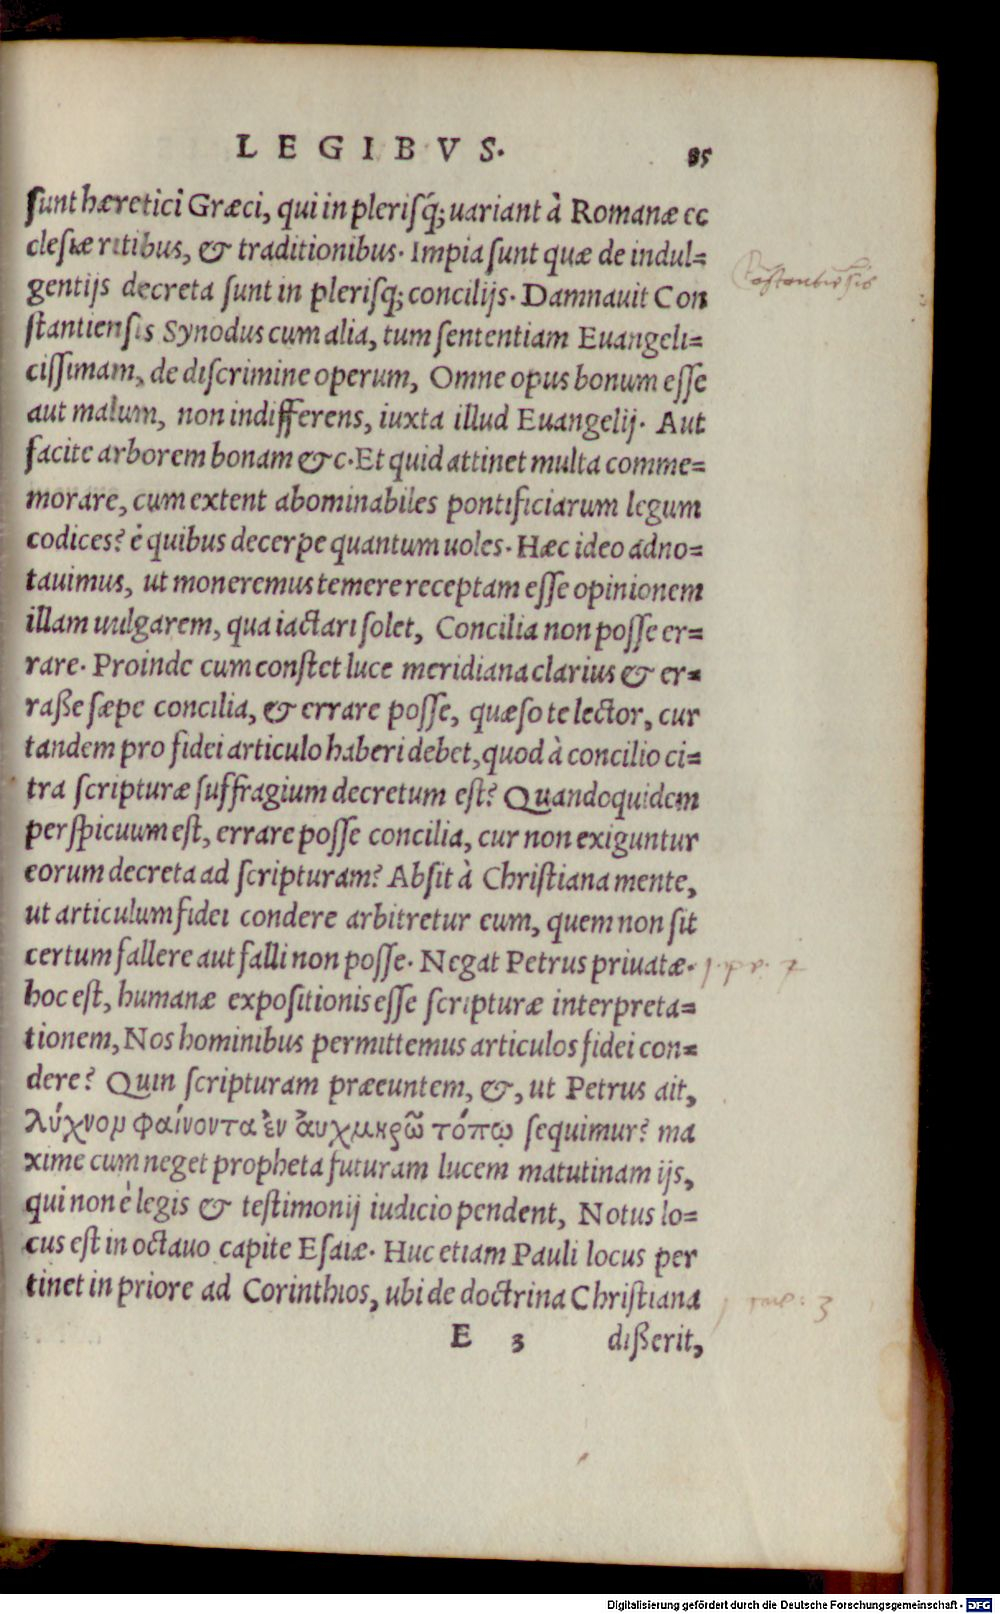 LEGIBVS. 85
sunt hæretici Græci, qui in plerisq́; uariant à Romanæ ec
clesiæ ritibus, & traditionibus. Impia sunt quæ de indul=
gentijs decreta sunt in plerisq; concilijs. Damnauit Con
stantiensis Synodus cum alia, tum sententiam Euangeli=
cissimam, de discrimine operum, Omne opus bonum esse
aut malum, non indifferens, iuxta illud Euangelij. Aut
facite arborem bonam &c. Et quid attinet multa comme=
morare, cum extent abominabiles pontificiarum legum
codices? è quibus decerpe quantum uoles. Hæc ideo adno=
tauimus, ut moneremus temere receptam esse opinionem
illam uulgarem, qua iactari solet, Concilia non posse er=
rare. Proinde cum constet luce meridiana clarius & er=
raße sæpe concilia, & errare posse, quæso te lector, cur
tandem pro fidei articulo haberi debet, quod à concilio ci=
tra scripturæ suffragium decretum est? Quandoquidem
perspicuum est, errare posse concilia, cur non exiguntur
eorum decreta ad scripturam? Absit à Christiana mente,
ut articulum fidei condere arbitretur eum, quem non sit
certum fallere aut falli non posse. Negat Petrus priuatæ.
hoc est, humanæ expositionis esse scripturæ interpreta=
tionem, Nos hominibus permittemus articulos fidei con=
dere? Quin scripturam præeuntem, &, ut Petrus ait,
λύχνον φαίνοντα ἐν ἀυχμηρῶ τόπῳ sequimur? ma
xime cum neget propheta futuram lucem matutinam ijs,
qui non è legis & testimonij iudicio pendent, Notus lo=
cus est in octauo capite Esaiæ. Huc etiam Pauli locus per
tinet in priore ad Corinthios, ubi de doctrina Christiana
E 3 dißerit,
Digitalisierung gefördert durch die Deutsche Forschungsgemeinschaft - DFG